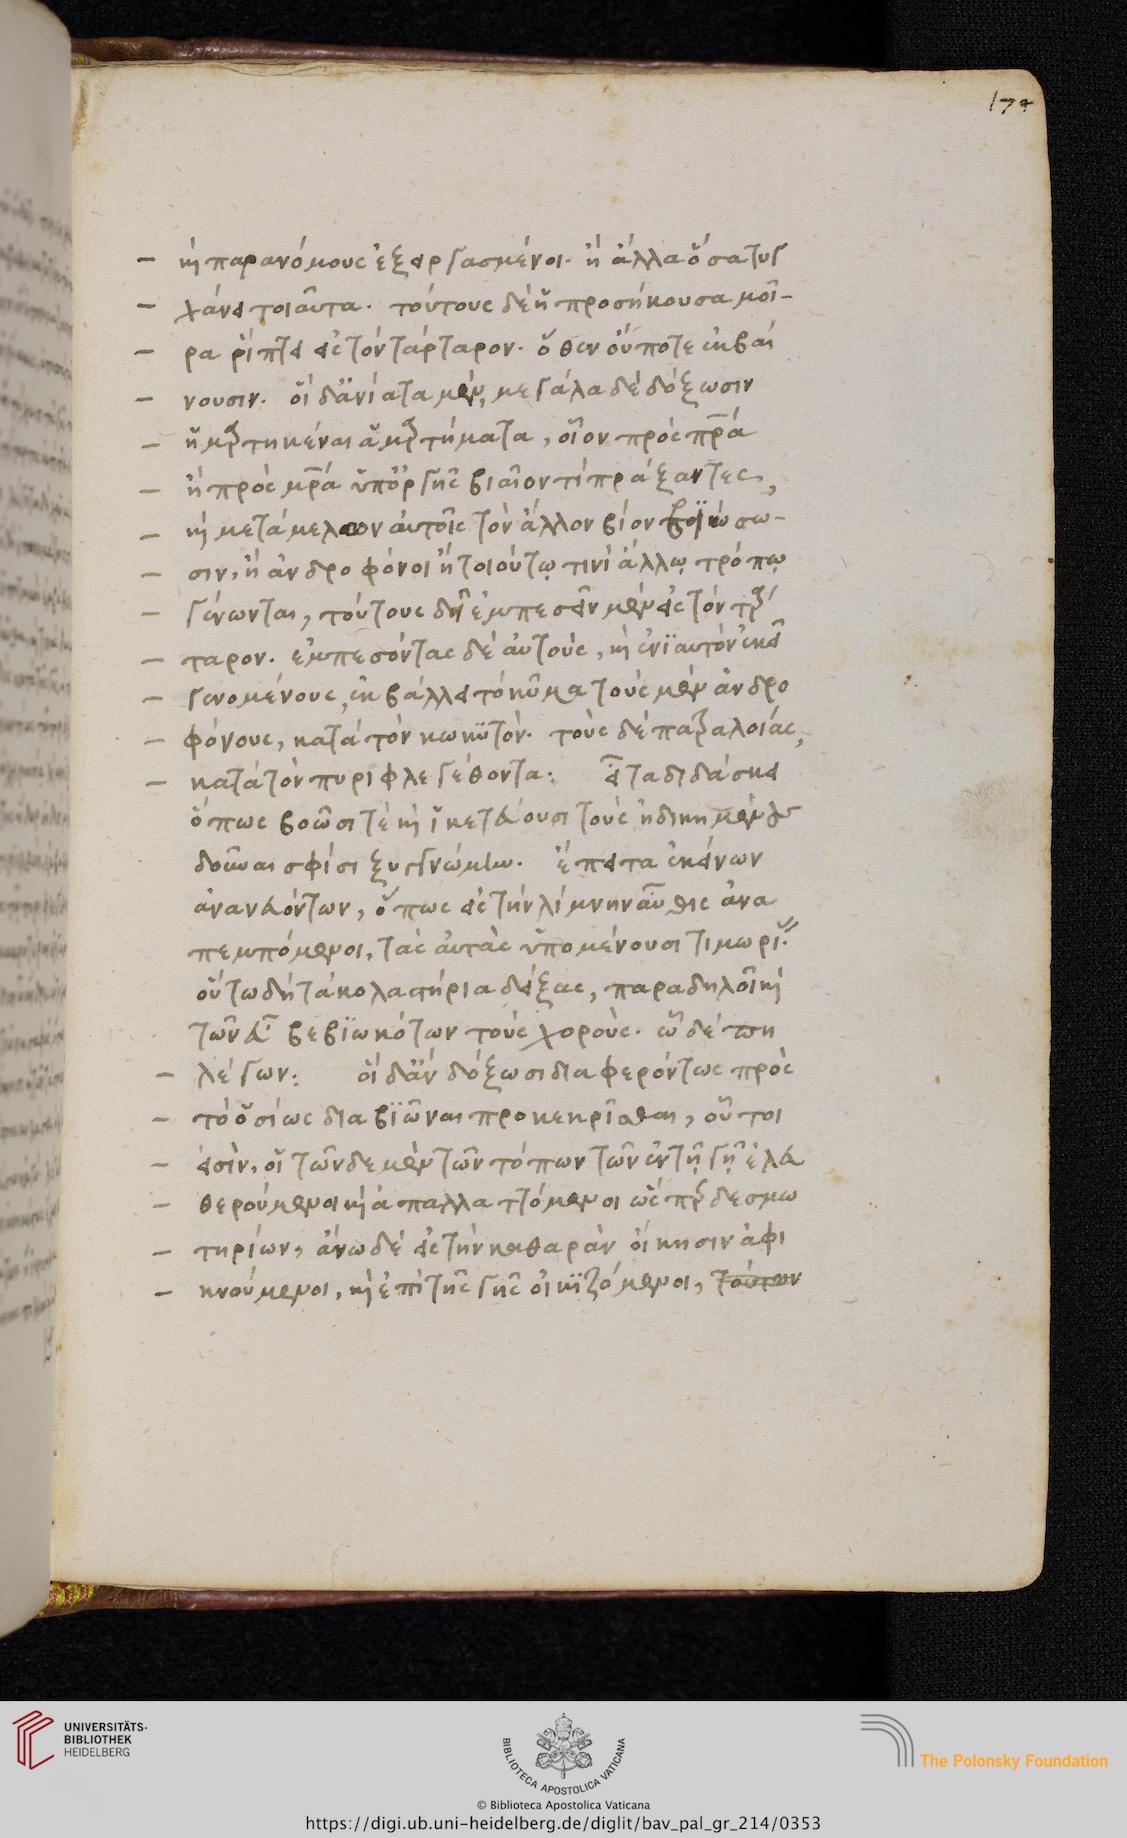 174
– καὶ παρανόμους ἐξειργασμένοι. ἢ ἄλλα ὅσα τυγ
– χάνει τοιαῦτα. τούτους δὲ ἡ προσήκουσα μοῖ–
– ρα ῥίπτει εἰς τὸν τάρταρον. ὅθεν οὔποτε ἐκβαί
– νουσιν. οἳ δ' ἂν ἰάσιμα μὲν, μεγάλα δὲ δόξωσιν
– ἡμρτηκέναι ἁμρτήματα, οἷον πρὸς πρα
– ἢ πρὸς μρα ὑπ' ὀργῆς βίαιόν τι πράξαντες,
– καὶ μεταμέλον αὐτοῖς τὸν ἄλλον βίον βϊώσω–
– σιν, ἢ ἀνδροφόνοι ἢ τοιούτῳ τινὶ ἄλλῳ τρόπῳ
– γένωνται, τούτους δὴ ἐμπεσεῖν μὲν εἰς τὸν τάρ
– ταρον. ἐμπεσόντας δὲ αὐτοὺς, καὶ ἐνϊαυτὸν ἐκεῖ
– γενομένους, ἐκβάλλει τὸ κῦμα τοὺς μὲν ἀνδρο
– φόνους, κατὰ τὸν κωκϋτόν. τοὺς δὲ πατραλοίας,
– κατὰ τὸν πυριφλεγέθοντα: εἶτα διδάσκει
ὅπως βοῶσι τὲ καὶ ἱκετεύουσι τοὺς ἠδικημένους
δοῦναι σφίσι ξυγγνώμην. ἔπειτα ἐκείνων
ἀνανευόντων, ὅπως εἰς τὴν λίμνην αὖθις ἀνα
πεμπόμενοι, τὰς αὐτὰς ὑπομένουσι τιμωρίας.
οὕτω δὴ τὰ κολαστήρια δείξας, παραδηλοῖ καὶ
τῶν εὖ βεβϊωκότων τοὺς χορούς. ὧδέ πη
– λέγων: οἳ δ' ἂν δόξωσι διαφερόντως πρὸς
– τὸ ὁσίως διαβϊῶναι προκεκρῖσθαι, οὗτοι
– εἰσὶν, οἳ τῶνδε μὲν τῶν τόπων τῶν ἐν τῇ γῇ ἐλευ
– θερούμενοι καὶ ἀπαλλαττόμενοι ὡσπερ δεσμω
– τηρίων, ἄνω δὲ εἰς τὴν καθαρὰν οἴκησιν ἀφι
– κνούμενοι, καὶ ἐπὶ τῆς γῆς οἰκϊζόμενοι, τούτων
UNIVERSITÄTS-
BIBLIOTHEK
HEIDELBERG
BIBLIOTECA APOSTOLICA VATICANA
The Polonsky Foundation
© Biblioteca Apostolica Vaticana
https://digi.ub.uni-heidelberg.de/diglit/bav_pal_gr_214/0353